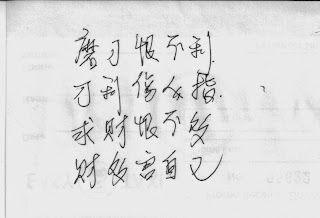 磨刀恨不利
刀利伤人指
求财恨不多
财多害自己